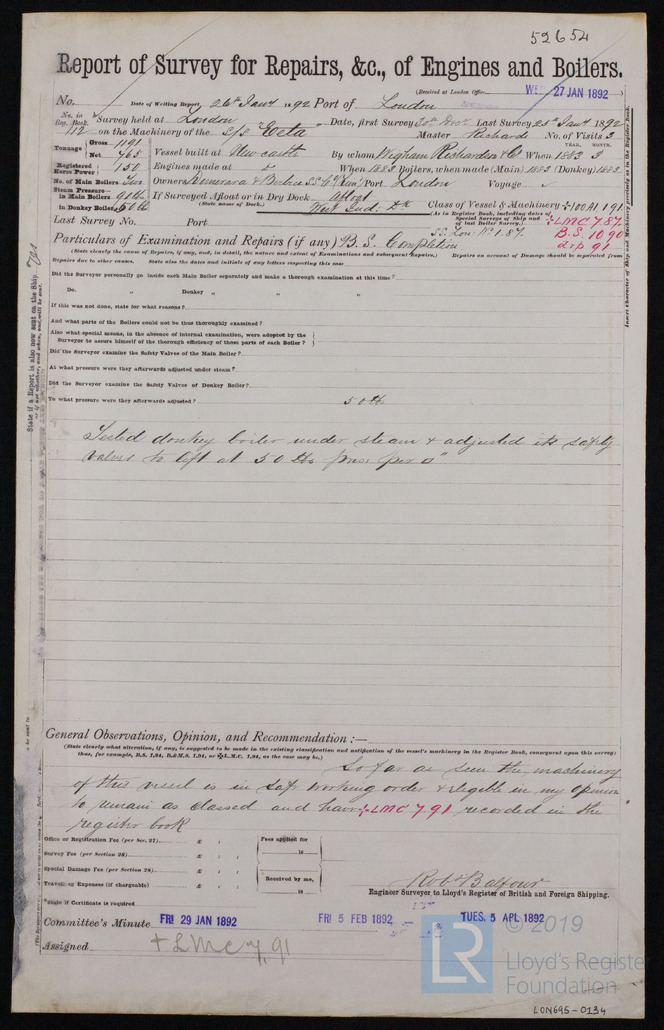 52654
Report of Survey for Repairs, &c., of Engines and Boilers.
(Received at London Office WED 27 JAN 1892)
No. Date of Writing Report 26th Jany 1892 Port of London
No. in Reg. Book. 112 Survey held at London Date, first Survey Last Survey 25th Jany 1892
on the Machinery of the S/S "Ceta" Master Richards No. of Visits 3
Tonnage Gross 1191 Net 765
YEAR. MONTH.
Vessel built at Newcastle By whom Wigham Richardson & Co When 1883 3
Registered Horse Power 150 Engines made at When 1883 Boilers, when made (Main) 1883 (Donkey) 1883
No. of Main Boilers Two Owners Demerara & Berbice Port London Voyage
Steam Pressure in Main Boilers 90 lb If Surveyed Afloat or in Dry Dock afloat
(State name of Dock.) West Ind: Dk
Class of Vessel & Machinery 100A1 1.91
in Donkey Boilers 50 lb
(As in Register Book, including dates of Special Surveys of Ship and of last Boiler Survey.)
+LMC 7.87
Last Survey No. Port SS. Lon. No 1. 87 B.S. 10.90
Particulars of Examination and Repairs (if any) B.S. Completion
(State clearly the cause of Repairs, if any, and, in detail, the nature and extent of Examinations and subsequent Repairs.) Repairs on account of Damage should be separated from
Repairs due to other causes. State also the dates and initials of any letters respecting this case
Did the Surveyor personally go inside each Main Boiler separately and make a thorough examination at this time?
Do. " Donkey " " "
If this was not done, state for what reasons?
And what parts of the Boilers could not be thus thoroughly examined?
Also what special means, in the absence of internal examination, were adopted by the
Surveyor to assure himself of the thorough efficiency of those parts of each Boiler?
Did the Surveyor examine the Safety Valves of the Main Boiler?
At what pressure were they afterwards adjusted under steam?
Did the Surveyor examine the Safety Valves of Donkey Boiler?
To what pressure were they afterwards adjusted? 50 lb
Tested donkey boiler under steam & adjusted its safety
valves to lift at 50 lbs press per □"
General Observations, Opinion, and Recommendation:—
(State clearly what alteration, if any, is suggested to be made in the existing classification and notification of the vessel's machinery in the Register Book, consequent upon this survey;
thus, for example, B.S. 1,94, B&M.S. 1,94, or ✠L.M.C. 1,94, as the case may be.)
So far as seen the machinery
of this vessel is in safe working order & eligible in my opinion
to remain as classed and have +LMC 7.91 recorded in the
register book
Office or Registration Fee (per Sec. 27) £ : :
Fees applied for
Survey Fee (per Section 28) £ : : 18
Special Damage Fee (per Section 28) £ : :
Received by me,
Travelling Expenses (if chargeable) £ : : 18
Robt Balfour
Engineer Surveyor to Lloyd's Register of British and Foreign Shipping.
*State if Certificate is required
Committee's Minute FRI 29 JAN 1892 FRI 5 FEB 1892 TUES. 5 APL 1892
Assigned + LMC 7,91
State if a Report is also now sent on the Ship
Insert Character of Ship and Machinery precisely as in the Register Book.
LR
© 2019
Lloyd's Register
Foundation
LON695-0134